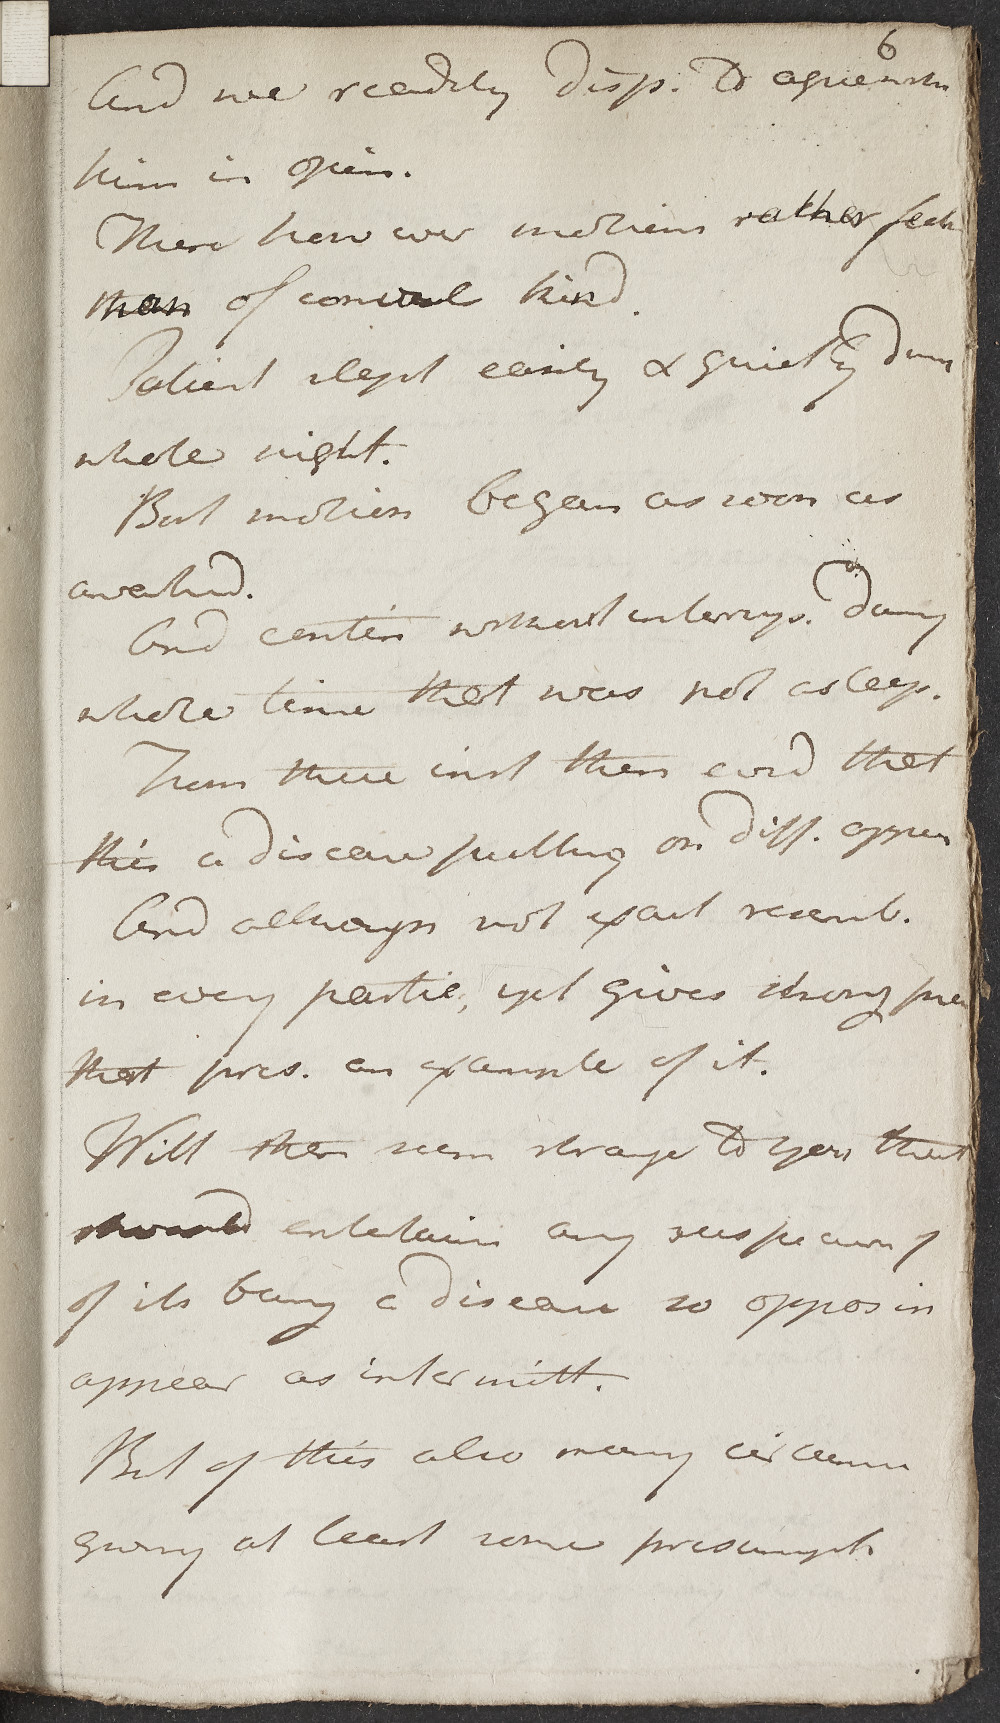 6
And we readily disp. to agree with
him in opin.
There how ever motions rather
than of convul kind.
Patient slept easily & quietly
whole night.
But motion began as soon as
awaked.
And contin without interrup. during
whole time that was not asleep.
From these inst then that
this a disease putting on diff. appear
And altho not exact resemb.
in every partic, yet gives strong
that pres. an example of it.
Will then seem strange to you that
should entertain any
of its being a disease so oppos in
appear as intermitt.
But of this also many circum
giving at least some presumpt.